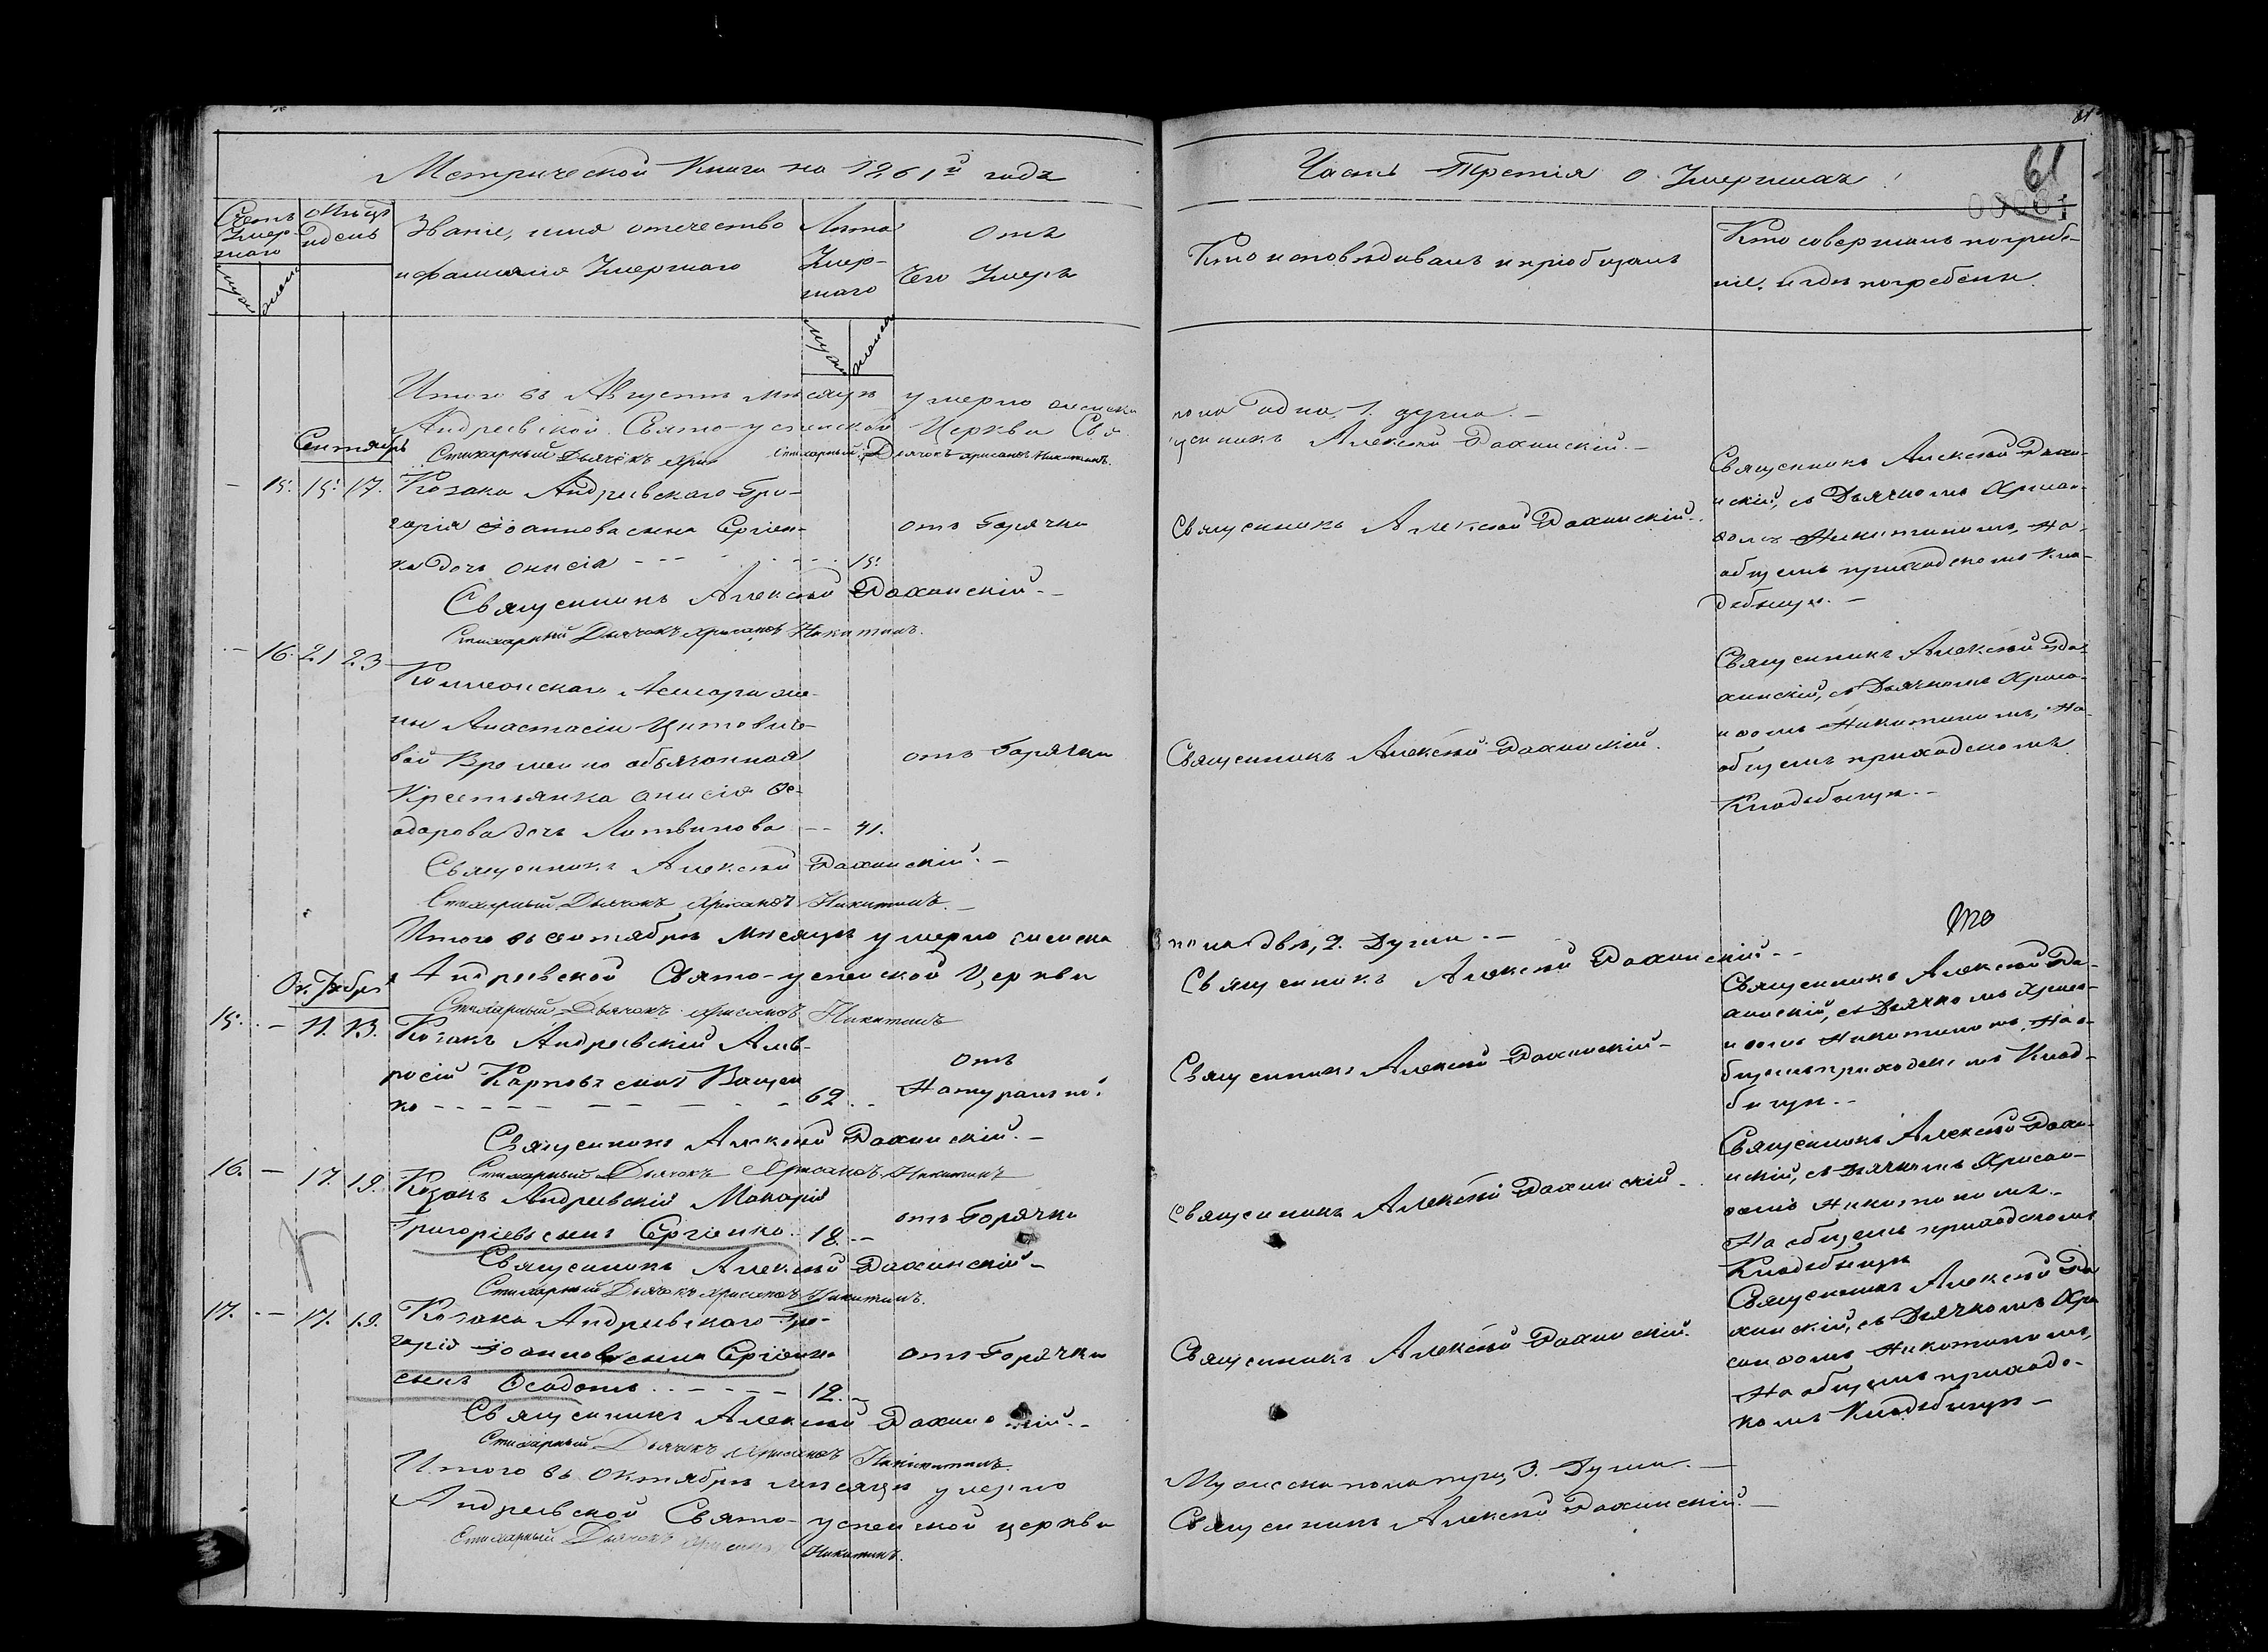 81
61
00061
Метрической Книги на 1861й годъ
Часть Третія о Умершихъ
Счетъ Умершаго
Мѣсяцъ и день
Званіе, имя отечество
и фамилія Умершаго
Лѣта
Умер-
шаго
отъ
Чего Умеръ
Кто исповѣдывалъ и пріобщалъ
Кто совершалъ погребе-
ніе, и гдѣ погребены.
Муж
женс
муж
женск
Итого въ Августѣ мѣсяцѣ умерло женска
пола одна 1. душа. —
Андреевской Свято-успенской Церкви Свя-
щенникъ Алексѣй Дахинскій. —
Сентябрь
Стихарный Дьячекъ Хри
Стихарный Дьячокъ Хрисанфъ Никитинъ.
— 15. 15. 17. Козака Андреевскаго Гри-
горія Іоаннова сына Сергіен-
ка дочь Онисія — — 15.
отъ Горячки
Священникъ Алексѣй Дахинскій.
Священникъ Алексѣй Дахи-
нскій, съ Дьячкомъ Хрисан-
фомъ Никитинымъ, На
общемъ приходскомъ Кла-
дбищѣ. —
Священникъ Алексѣй Дахинскій. —
Стихарный Дьячокъ Хрисанфъ Никитинъ.
— 16. 21 23
Коллежскаго Асесора же-
ны Анастасіи Цитовиче-
вой Временно обязанная
Крестьянка Онисія Ѳе-
одорова дочь Литвинова — 41.
отъ Горячки
Священникъ Алексѣй Дахинскій.
Священникъ Алексѣй Да-
хинскій, съ Дьячкомъ Хриса-
нфомъ Никитинымъ, На
общемъ приходскомъ
Кладбищѣ. —
Священникъ Алексѣй Дахинскій. —
Стихарный Дьячокъ Хрисанфъ Никитинъ. —
Итого въ сентябрѣ мѣсяцѣ умерло женска
пола двѣ, 2. Души. —
Андреевской Свято-успенской Церкви
Священникъ Алексѣй Дахинскій. —
Октябрь
Стихарный Дьячокъ Хрисанфъ Никитинъ
15. — 11. 13. Козакъ Андреевскій Амв-
росій Карповъ сынъ Ващен
ко — — — — 62. —
отъ
Натуральной
Священникъ Алексѣй Дахинскій —
Священникъ Алексѣй Да-
хинскій, съ Дьячкомъ Хрисан-
фомъ Никитинымъ, На о-
бщемъ приходскомъ Клад-
бищѣ. —
Священникъ Алексѣй Дахинскій. —
Стихарный Дьячокъ Хрисанфъ Никитинъ
16. — 17. 19. Козакъ Андреевскій Макарій
Григоріевъ сынъ Сергіенко. 18. —
отъ Горячки
Священникъ Алексѣй Дахинскій —
Священникъ Алексѣй Дахи-
нскій, съ Дьячкомъ Хрисан-
фомъ Никитинымъ. —
На общемъ приходскомъ
Кладбищѣ
Священникъ Алексѣй Дахинскій —
Стихарный Дьячокъ Хрисанфъ Никитинъ.
17. — 17. 19. Козака Андреевскаго Гри-
горія Іоаннова сына Сергіенка
сынъ Ѳеодотъ — — — 12. —
отъ Горячки
Священникъ Алексѣй Дахинскій.
Священникъ Алексѣй Да
хинскій, съ Дьячкомъ Хри
санфомъ Никитинымъ,
На общемъ приходс-
комъ Кладбищѣ —
Священникъ Алексѣй Дахинскій. —
Стихарный Дьячокъ Хрисанфъ Никитинъ.
Итого въ Октябрѣ мѣсяцѣ умерло
Мужеска пола три, 3. Души. —
Андреевской Свято-успенской церкви
Священникъ Алексѣй Дахинскій. —
Стихарный Дьячокъ Хрисанфъ Никитинъ.